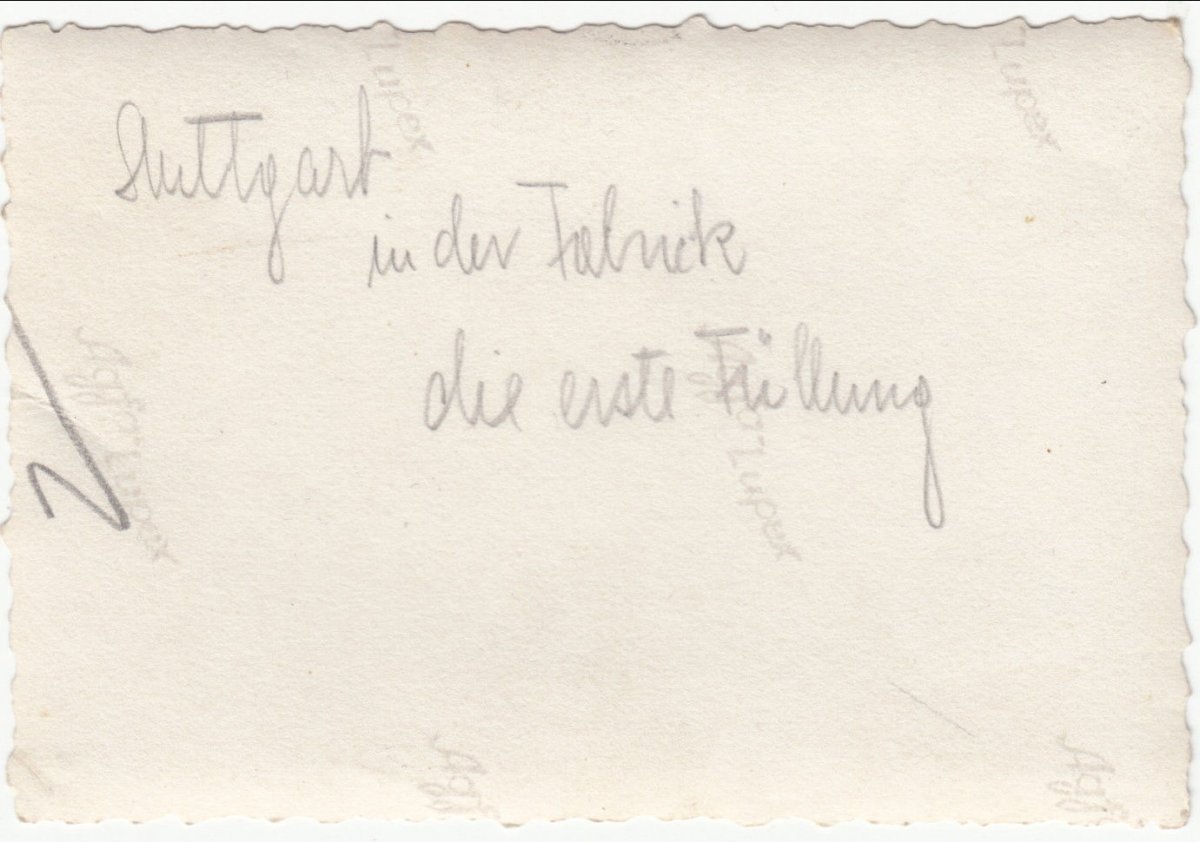 Stuttgart
in der Fabrick
die erste Füllung
Lupex
Lupex
Agfa Lupex
Agfa Lupex
Agf
Agf